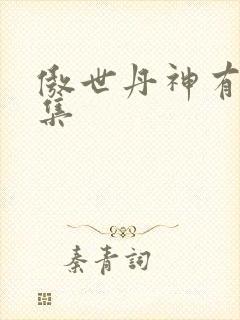 傲世丹神有
集
秦青詞